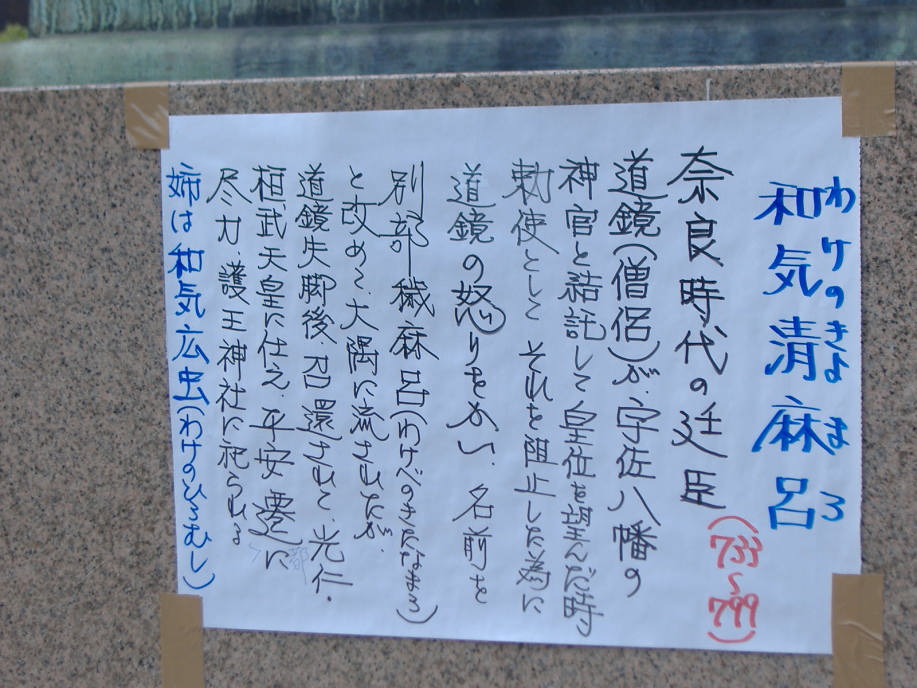 わけのきよまろ
和気清麻呂
奈良時代の廷臣
(733〜799)
道鏡(僧侶)が、宇佐八幡の
神官と結託して皇位を望んだ時
勅使として それを阻止した為に
道鏡の怒りをかい、名前を
別部 穢麻呂(わけべのきたなまろ)
と改めて、大隅に流されたが、
道鏡失脚後、召還されて、光仁、
桓武天皇に仕え、平安遷に
都
尽力、護王神社に祀られる
姉は和気広虫(わけのひろむし)